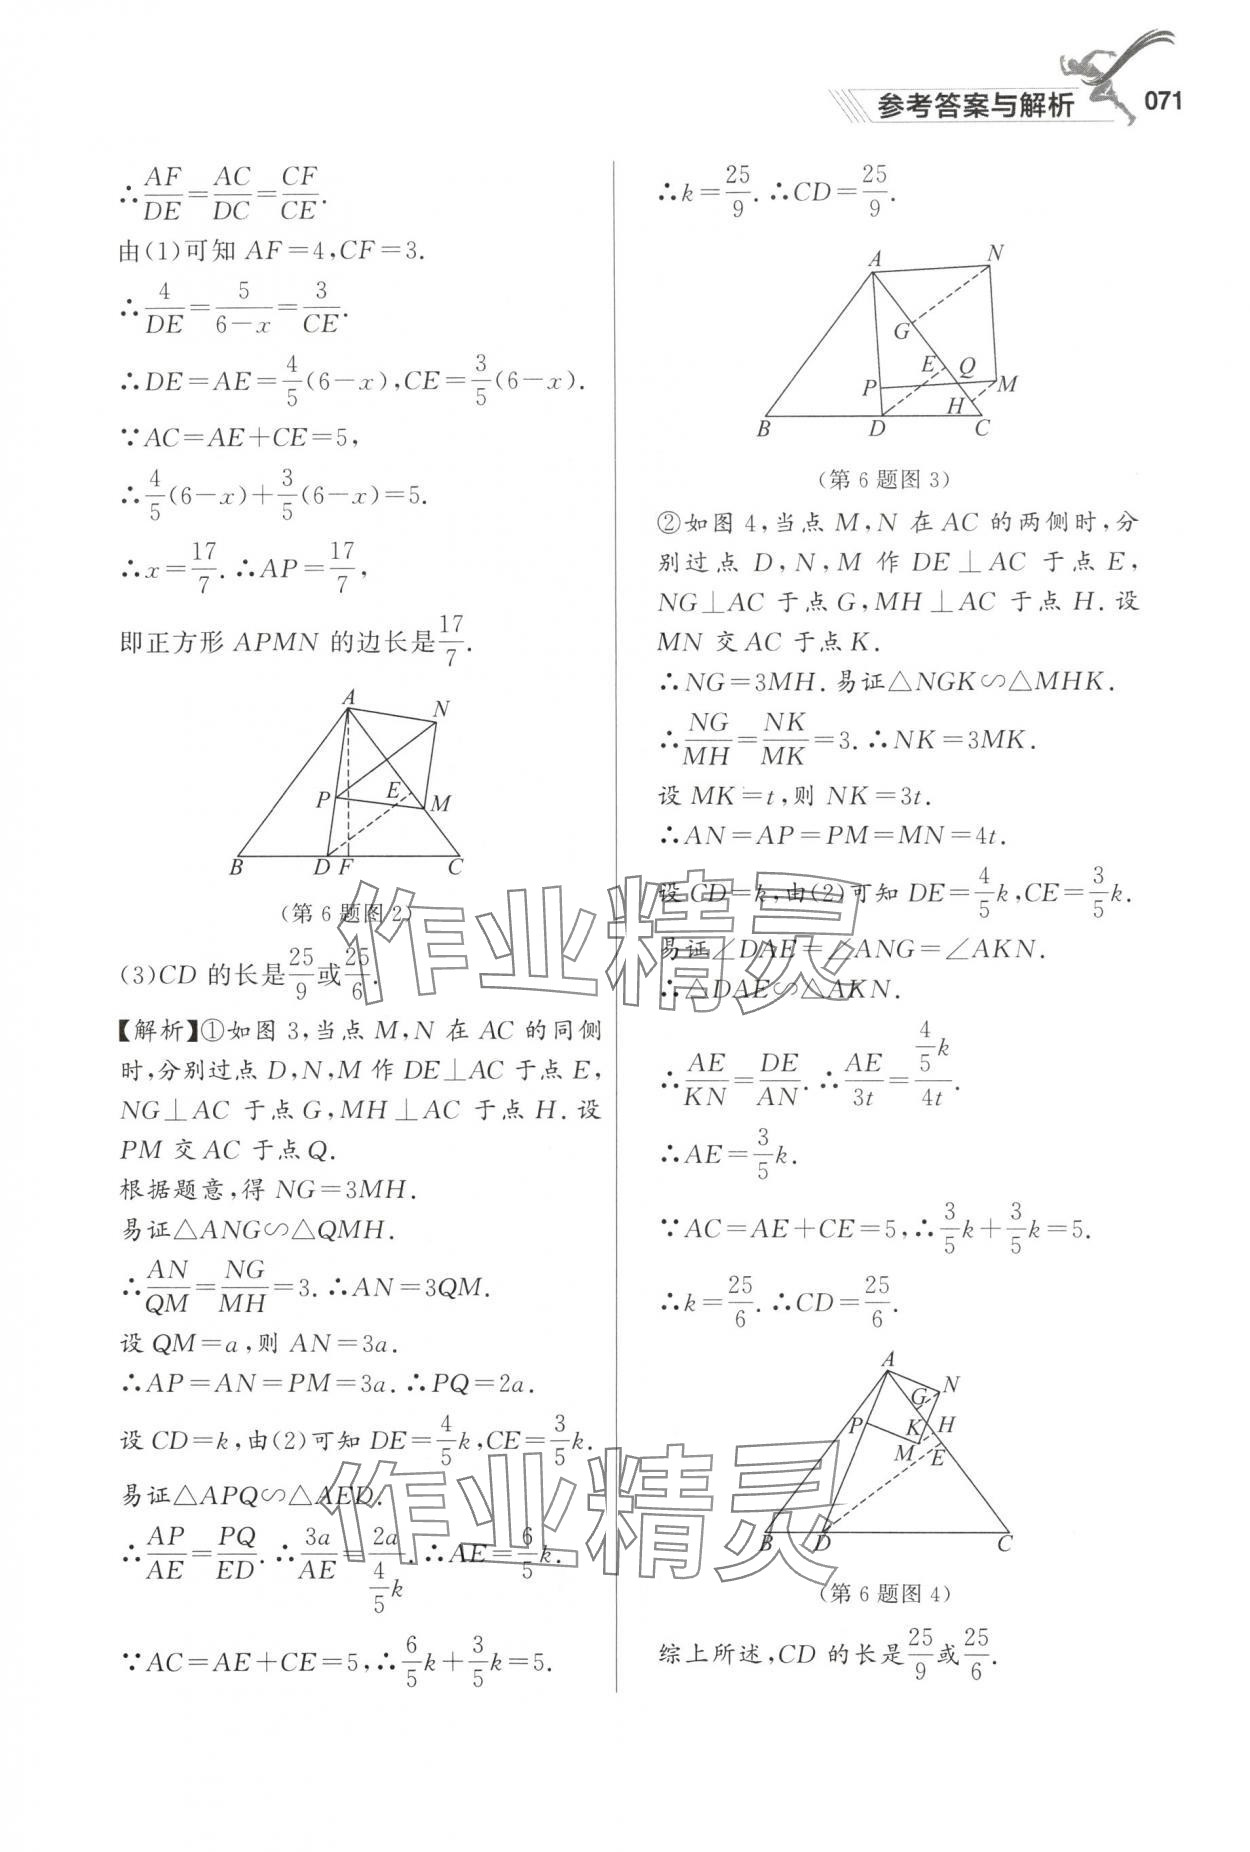 参考答案与解析 071
∴AF/DE=AC/DC=CF/CE.
由(1)可知 AF=4,CF=3.
∴4/DE=5/(6-x)=3/CE.
∴DE=AE=4/5(6-x),CE=3/5(6-x).
∵AC=AE+CE=5,
∴4/5(6-x)+3/5(6-x)=5.
∴x=17/7.∴AP=17/7,
即正方形 APMN 的边长是17/7.
A
N
P
E
M
B
D
F
C
(第 6 题图 2)
(3)CD 的长是25/9或25/6.
【解析】①如图 3,当点 M,N 在 AC 的同侧
时,分别过点 D,N,M 作 DE⊥AC 于点 E,
NG⊥AC 于点 G,MH⊥AC 于点 H.设
PM 交 AC 于点 Q.
根据题意,得 NG=3MH.
易证△ANG∽△QMH.
∴AN/QM=NG/MH=3.∴AN=3QM.
设 QM=a,则 AN=3a.
∴AP=AN=PM=3a.∴PQ=2a.
设 CD=k,由(2)可知 DE=4/5k,CE=3/5k.
易证△APQ∽△AED.
∴AP/AE=PQ/ED.∴3a/AE=2a/(4/5k).∴AE=6/5k.
∵AC=AE+CE=5,∴6/5k+3/5k=5.
∴k=25/9.∴CD=25/9.
A
N
G
E
Q
P
M
H
B
D
C
(第 6 题图 3)
②如图 4,当点 M,N 在 AC 的两侧时,分
别过点 D,N,M 作 DE⊥AC 于点 E,
NG⊥AC 于点 G,MH⊥AC 于点 H.设
MN 交 AC 于点 K.
∴NG=3MH.易证△NGK∽△MHK.
∴NG/MH=NK/MK=3.∴NK=3MK.
设 MK=t,则 NK=3t.
∴AN=AP=PM=MN=4t.
设 CD=k,由(2)可知 DE=4/5k,CE=3/5k.
易证∠DAE=∠ANG=∠AKN.
∴△DAE∽△AKN.
∴AE/KN=DE/AN.∴AE/3t=(4/5k)/4t.
∴AE=3/5k.
∵AC=AE+CE=5,∴3/5k+3/5k=5.
∴k=25/6.∴CD=25/6.
A
G
N
P
K
H
M
E
B
D
C
(第 6 题图 4)
综上所述,CD 的长是25/9或25/6.
作业精灵
作业精灵